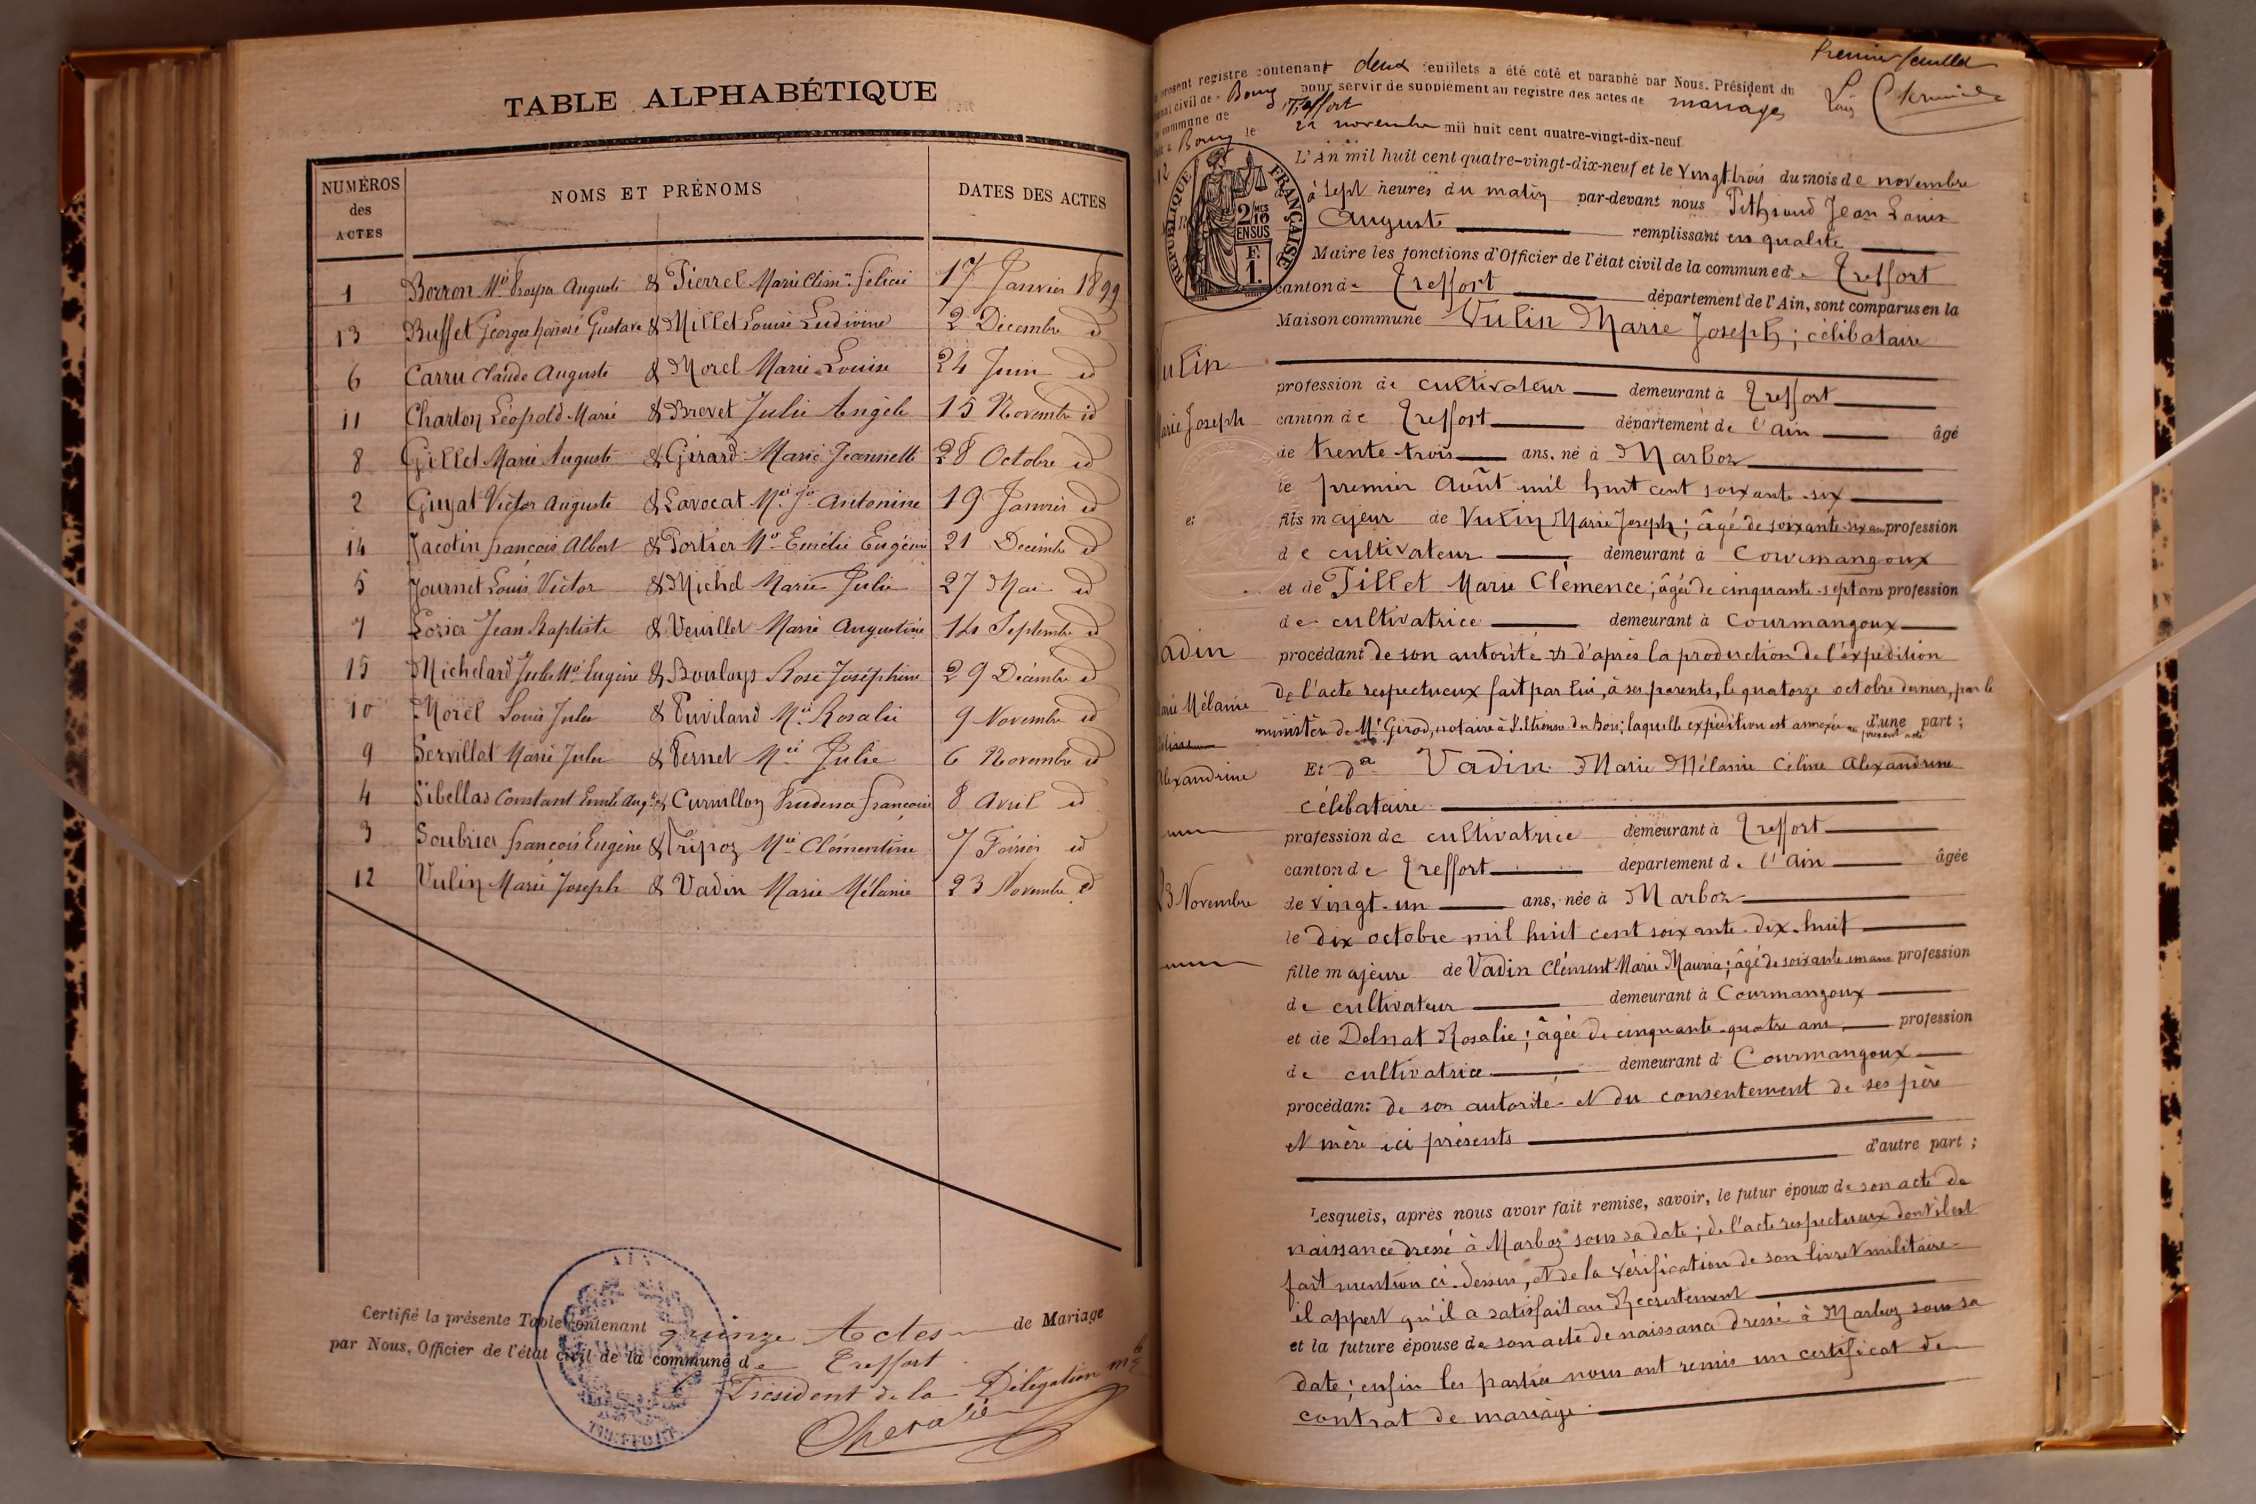 TABLE ALPHABÉTIQUE
NUMÉROS des ACTES
NOMS ET PRÉNOMS
DATES DES ACTES
1 Borron Mie Prosper Auguste & Pierrel Marie Clémce Félicie 17 Janvier 1899
13 Buffet Georges honoré Gustave & Millet Louise Ludivine 2 Décembre id
6 Carru Claude Auguste & Morel Marie Louise 24 Juin id
11 Charton Léopold Marie & Brevet Julie Angèle 15 Novembre id
8 Gillet Marie Auguste & Girard Marie Jeannette 28 Octobre id
2 Guyat Victor Auguste & Lavocat Mie Jne Antonine 19 Janvier id
14 Jacotin françois Albert & Portier Mie Emélie Eugénie 21 Décembre id
5 Journet Louis Victor & Michel Marie Julie 27 Mai id
7 Losier Jean Baptiste & Veuillet Marie Augustine 14 Septembre id
15 Michelard Jules Mie Eugène & Bouloys Rose Joséphine 29 Décembre id
10 Morel Louis Jules & Puviland Mie Rosalie 9 Novembre id
9 Servillat Marie Jules & Pernet Mie Julie 6 Novembre id
4 Sibellas Constant Emile Augte & Curvillon Prudence françoise 8 Avril id
3 Soubrier françois Eugène & Tripoz Mie Clémentine 7 Février id
12 Vulin Marie Joseph & Vadin Marie Mélanie 23 Novembre id
Certifié la présente Table contenant quinze Actes de Mariage
par Nous, Officier de l'état civil de la commune de Treffort
Président de la Délégation mle
Chevalier
AIN
TREFFORT
Premier feuillet
présent registre contenant deux feuillets a été coté et paraphé par Nous, Président du
civil de Bourg pour servir de supplément au registre des actes de mariage
commune de Treffort
à Bourg le 22 novembre mil huit cent quatre-vingt-dix-neuf
12
RÉPUBLIQUE FRANÇAISE
2/10
EN SUS
F.
1.
L'An mil huit cent quatre-vingt-dix-neuf et le Vingt trois du mois de novembre
à sept heures du matin par-devant nous Pithoud Jean Louis
Auguste remplissant en qualité
Maire les fonctions d'Officier de l'état civil de la commune de Treffort
canton de Treffort département de l'Ain, sont comparus en la
Maison commune Vulin Marie Joseph; célibataire
Vulin
profession de cultivateur demeurant à Treffort
Marie Joseph
canton de Treffort département de l'Ain âgé
de trente-trois ans, né à Marboz
le premier Août mil huit cent soixante-six
et
fils majeur de Vulin Marie Joseph; âgé de soixante-six ans profession
de cultivateur demeurant à Courmangoux
et de Pillet Marie Clémence; âgée de cinquante-sept ans profession
de cultivatrice demeurant à Courmangoux
Vadin
procédant de son autorité et d'après la production de l'expédition
de l'acte respectueux fait par lui, à ses parents, le quatorze octobre dernier, par le
Marie Mélanie
ministère de Me Girod, notaire à St Etienne du Bois; laquelle expédition est annexée au présent acte d'une part;
Céline
Et Dlle Vadin Marie Mélanie Céline Alexandrine
Alexandrine
célibataire
profession de cultivatrice demeurant à Treffort
canton de Treffort département de l'Ain âgée
23 Novembre
de vingt-un ans, née à Marboz
le dix octobre mil huit cent soixante-dix-huit
fille majeure de Vadin Clément Marie Maurice; âgé de soixante un ans profession
de cultivateur demeurant à Courmangoux
et de Delnat Rosalie; âgée de cinquante-quatre ans profession
de cultivatrice demeurant à Courmangoux
procédant de son autorité et du consentement de ses père
et mère ici présents
d'autre part;
Lesquels, après nous avoir fait remise, savoir, le futur époux de son acte de
naissance dressé à Marboz sous sa date; de l'acte respectueux dont il est
fait mention ci-dessus, et de la vérification de son livret militaire
il appert qu'il a satisfait au Recrutement
et la future épouse de son acte de naissance dressé à Marboz sous sa
date; enfin les parties nous ont remis un certificat de
contrat de mariage